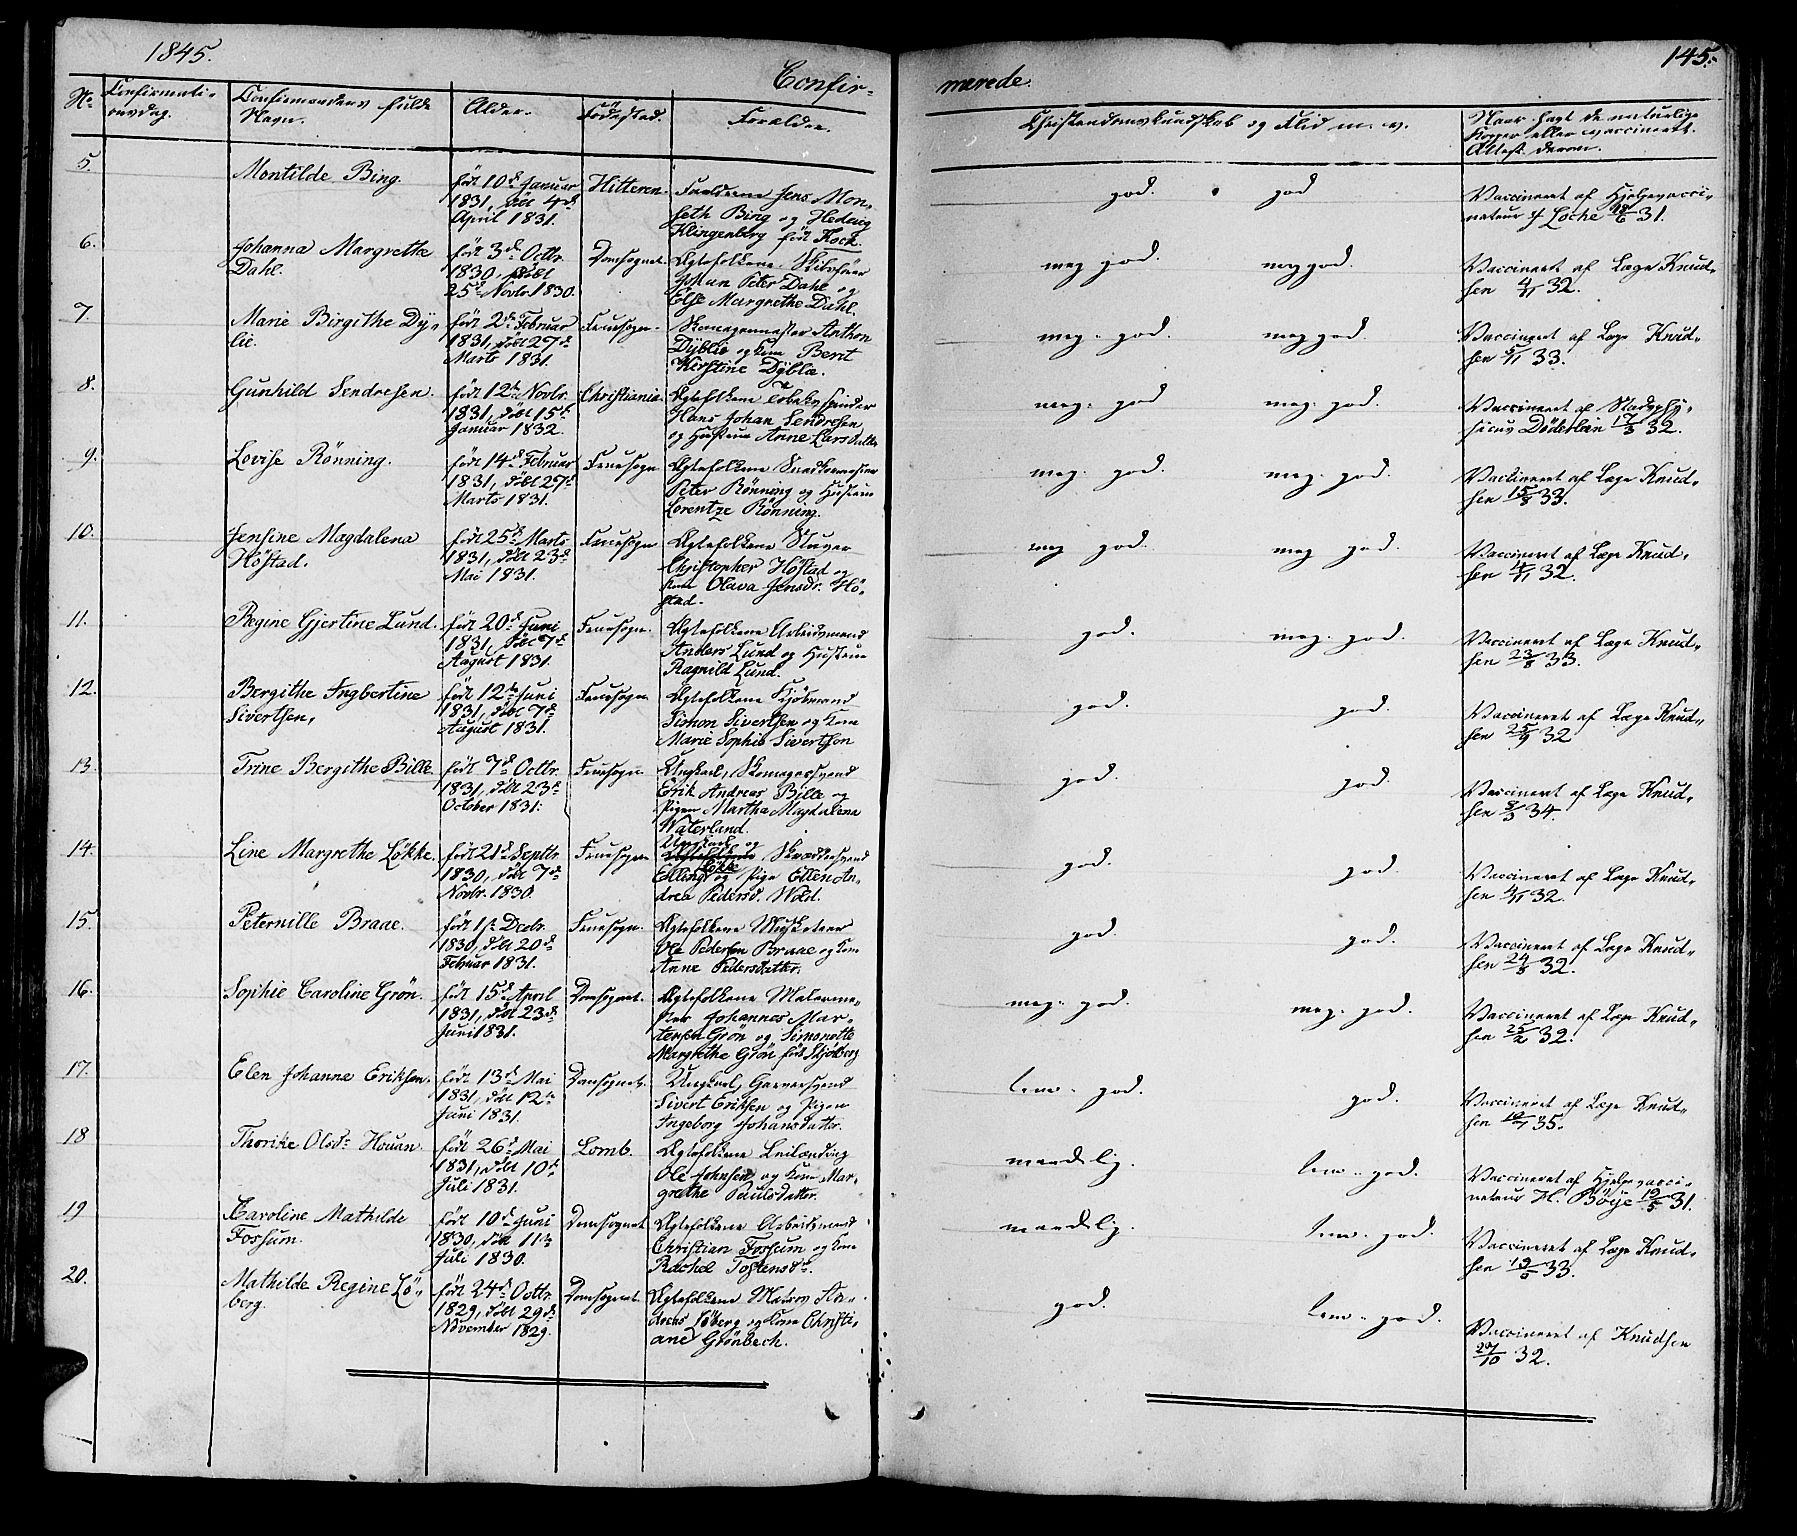 1845.
145.
Confir-
merede.
No
Confirmati-
onsdag.
Confirmandens fulde
Navn.
Alder.
Fødested.
Forældre.
Christendomskundskab og Flid m. v.
Naar havt de naturlige
Kopper eller vaccineret.
Attest derom.
5.
Montilde Bing
født 10de Januar
1831, døbt 4de
April 1831.
Hitteren.
Forældrene Jens Mon-
seth Bing og Hedvig
Klingenberg født Kock.
god.
god
Vaccineret af Hjelpevacci-
nateur Loche 18/6 31.
6.
Johanna Margrethe
Dahl.
født 3de Octbr.
1830, døbt
25de Novbr. 1830.
Domsognet.
Ægtefolkene Skibsfører
Johan Peter Dahl og
Else Margrethe Dahl.
meg god.
meg god.
Vaccineret af Læge Knud-
sen 4/11 32.
7.
Marie Birgithe Dy-
blie.
født 2de Februar
1831, døbt 27de
Marts 1831.
Fruesogn.
Skomagermester Anthon
Dyblie og Kone Berit
Kerstine Dyblie.
meg. god.
meg god.
Vaccineret af Læge Knud-
sen 5/11 33.
8.
Gunhild Sendresen.
født 12te Novbr.
1831, døbt 15de
Januar 1832.
Christiania.
Ægtefolkene Tobaksspinder
Hans Johan Sendresen
og Hustrue Anne Larsdatter
meg. god
meg. god.
Vaccineret af Stadsphy-
sicus Døderlein 17/3 32.
9.
Lovise Rønning.
født 14de Februar
1831, døbt 27de
Marts 1831.
Fruesogn
Ægtefolkene Snedkermester
Peter Rønning og Hustrue
Lorentze Rønning.
meg. god.
meg. god.
Vaccineret af Læge Knud-
sen 15/8 33.
10.
Jensine Magdalena
Høstad.
født 25de Marts
1831, døbt 23de
Mai 1831.
Fruesogn
Ægtefolkene Stuver
Christopher Høstad og
Kone Olava Jensdr. Hø-
stad.
meg god.
meg god.
Vaccineret af Læge Knud-
sen 4/11 32.
11.
Regine Gjertine Lund.
født 20de Juni
1831, døbt 7de
August 1831.
Fruesogn.
Ægtefolkene Arbeidsmand
Anders Lund og Hustrue
Ragnild Lund.
god.
meg. god.
Vaccineret af Læge Knud-
sen 23/8 33.
12.
Bergithe Ingbertine
Sivertsen,
født 12te Juni
1831, døbt 7de
August 1831.
Fruesogn
Ægtefolkene Kjøbmand
Simon Sivertsen og Kone
Marie Sophie Sivertson
god.
god.
Vaccineret af Læge Knud-
sen 25/9 32
13.
Trine Bergithe Bille
født 7de Octbr.
1831, døbt 23de
October 1831.
Fruesogn
Ungkarl, Skomagersvend
Erik Andreas Bille og
Pigen Martha Magdalena
Waterland.
god.
god.
Vaccineret af Læge Knud-
sen 8/3 34.
14.
Line Margrethe Løkke.
født 21de Septbr.
1830, døbt 7de
Novbr. 1830.
Fruesogn
Ungkarl og
Ægtefolkene Skræddersvend
Løkke
Elling og Pige Ellen An-
drea Pedersd. Wold.
god.
god.
Vaccineret af Læge Knud-
sen 4/11 32.
15.
Peternille Braae.
født 1ste Decbr.
1830, døbt 20de
Febuar 1831.
Fruesogn.
Ægtefolkene Musketeer
Ole Pedersen Braae og Kone
Anne Pedersdatter.
god
god.
Vaccineret af Læge Knud-
sen 24/8 32.
16.
Sophie Caroline Grøn.
født 15de April
1831, døbt 23de
Juni 1831.
Domsognet.
Ægtefolkene Malerme-
ster Johannes Mar-
tensen Grøn og Simonette
Margrethe Grøn født Skjødberg
meg. god.
meg. god.
Vaccineret af Læge Knud-
sen 25/2 32.
17.
Elen Johanne Eriksen.
født 13de Mai
1831, døbt 12te
Juni 1831.
Domsognet.
Ungkarl, Garversvend
Sivert Eriksen og Pigen
Ingeborg Johansdatter.
tem. god.
god.
Vaccineret af Læge Knud-
sen 10/7 35.
18
Thorike Olsdr. Houan.
født 26de Mai
1831, døbt 10de
Juli 1831.
Lomb.
Ægtefolkene Leilænding
Ole Johnsen og Kone Mar-
grethe Paulsdatter.
maadelig.
tem. god.
Vaccineret af Hjelpevacci-
nateur H. Bøye 19/5 31.
19
Caroline Mathilde
Fossum.
født 10de Juni
1830, døbt 11te
Juli 1830.
Domsognet
Ægtefolkene Arbeidsmand
Christian Fossum og Kone
Rachel Tostensdr.
maadelig.
tem. god.
Vaccineret af Læge Knud-
sen 19/8 33.
20.
Mathilde Regine Lø-
berg.
født 24de Octbr.
1829, døbt 29de
November 1829.
Domsognet.
Ægtefolkene Matros An-
dreas Løberg og Kone Christi-
ane Grønbech.
god.
tem. god.
Vaccineret af Knudsen
27/10 32.